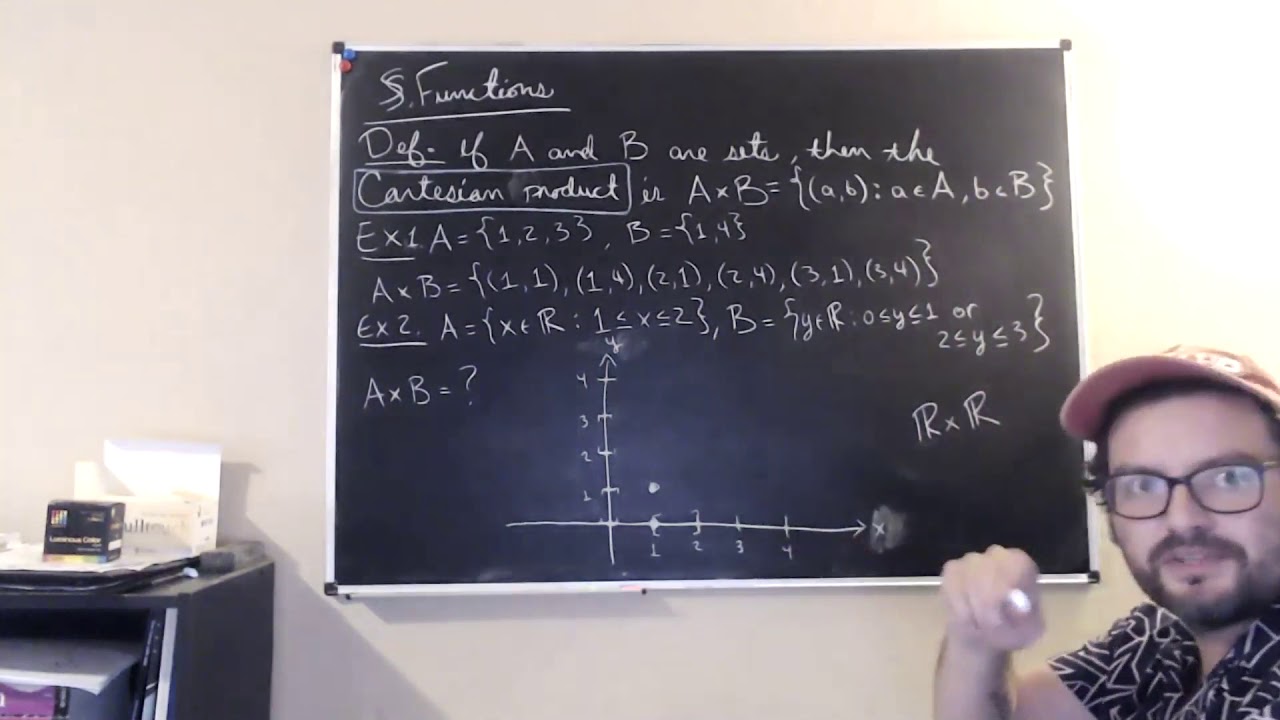 §. Functions
Def. If A and B are sets, then the
Cartesian product is A×B={(a,b): a∈A, b∈B}
Ex1. A={1,2,3}, B={1,4}
A×B={(1,1),(1,4),(2,1),(2,4),(3,1),(3,4)}
Ex 2. A={x∈ℝ: 1≤x≤2}, B={y∈ℝ: 0≤y≤1 or
2≤y≤3}
A×B=?
y
4
3
2
1
[ ]
1 2 3 4
x
ℝ×ℝ
Luminous Color